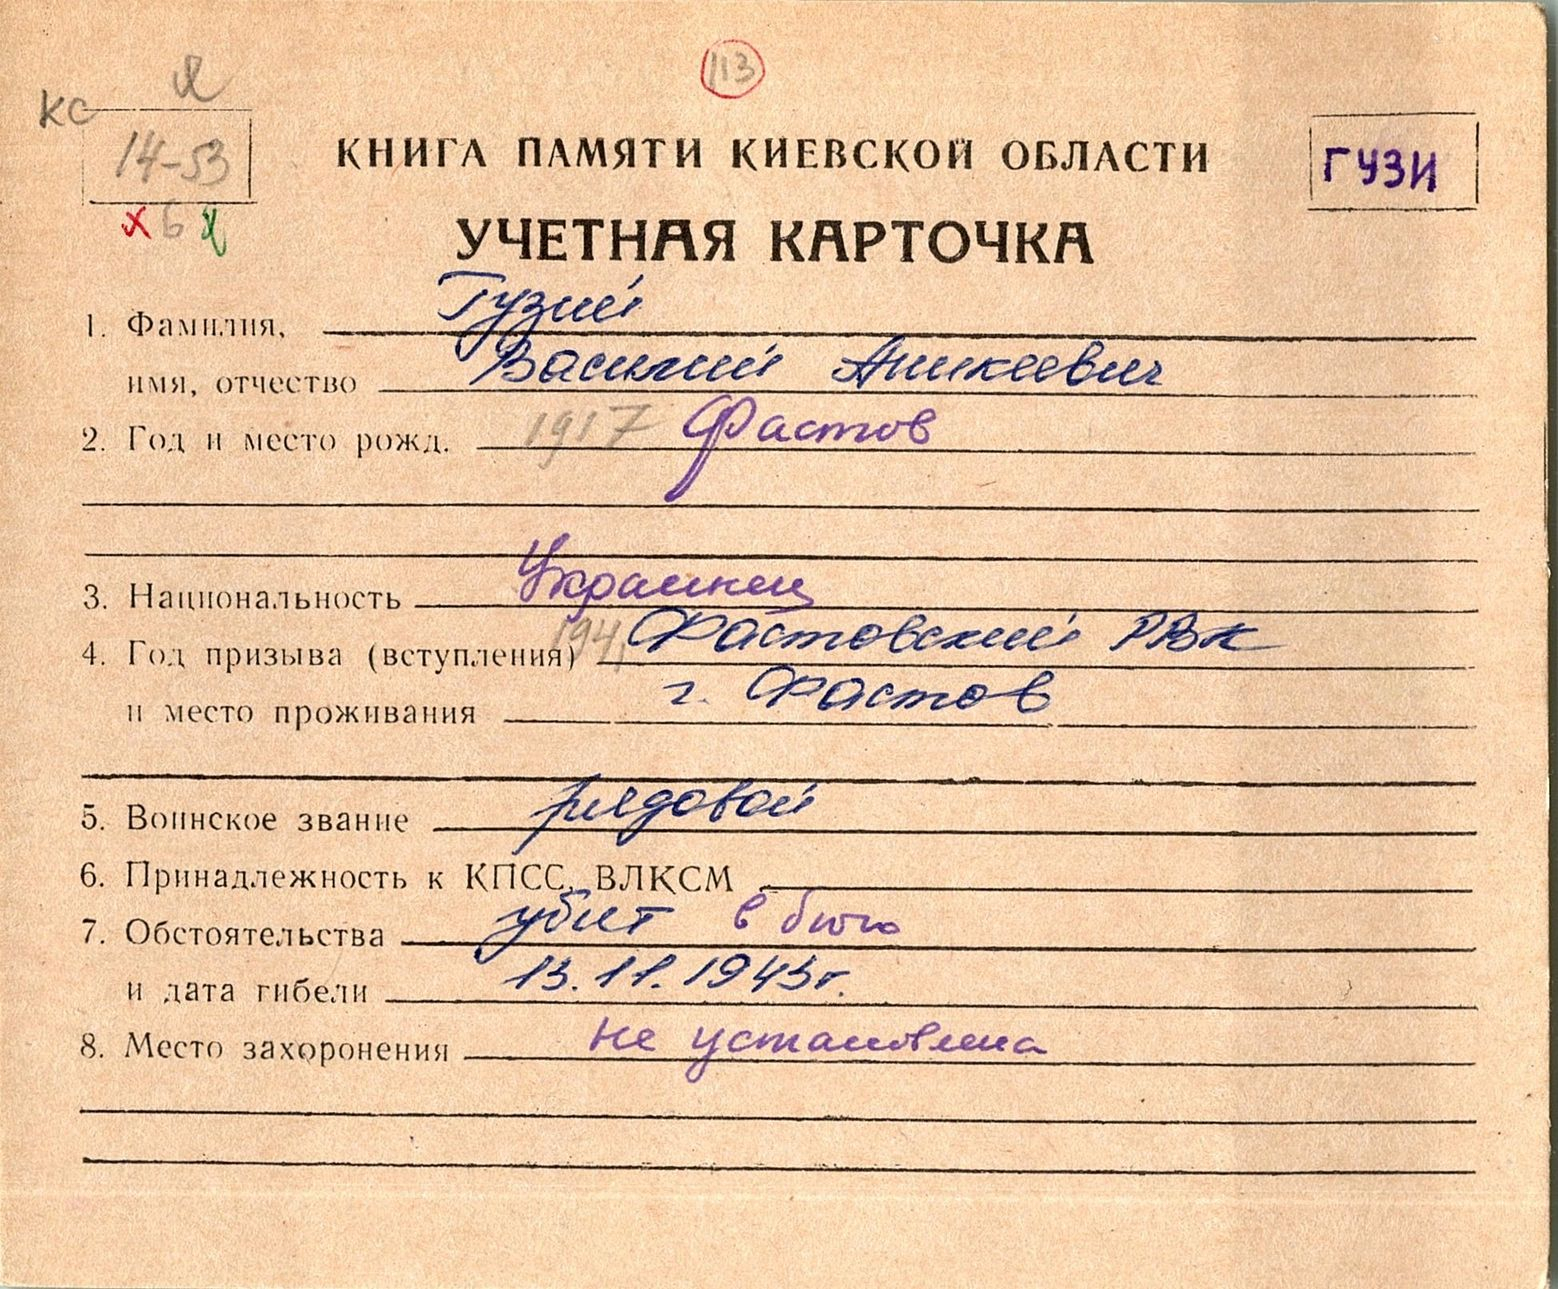 113
КС
14-53
6
КНИГА ПАМЯТИ КИЕВСКОЙ ОБЛАСТИ
ГУЗИ
УЧЕТНАЯ КАРТОЧКА
1. Фамилия, Гузий
имя, отчество Василий Аникеевич
2. Год и место рожд. 1917 Фастов
3. Национальность Украинец
4. Год призыва (вступления) 1941 Фастовский РВК
и место проживания г. Фастов
5. Воинское звание рядовой
6. Принадлежность к КПСС, ВЛКСМ
7. Обстоятельства убит в бою
и дата гибели 13.11.1943г.
8. Место захоронения не установлено